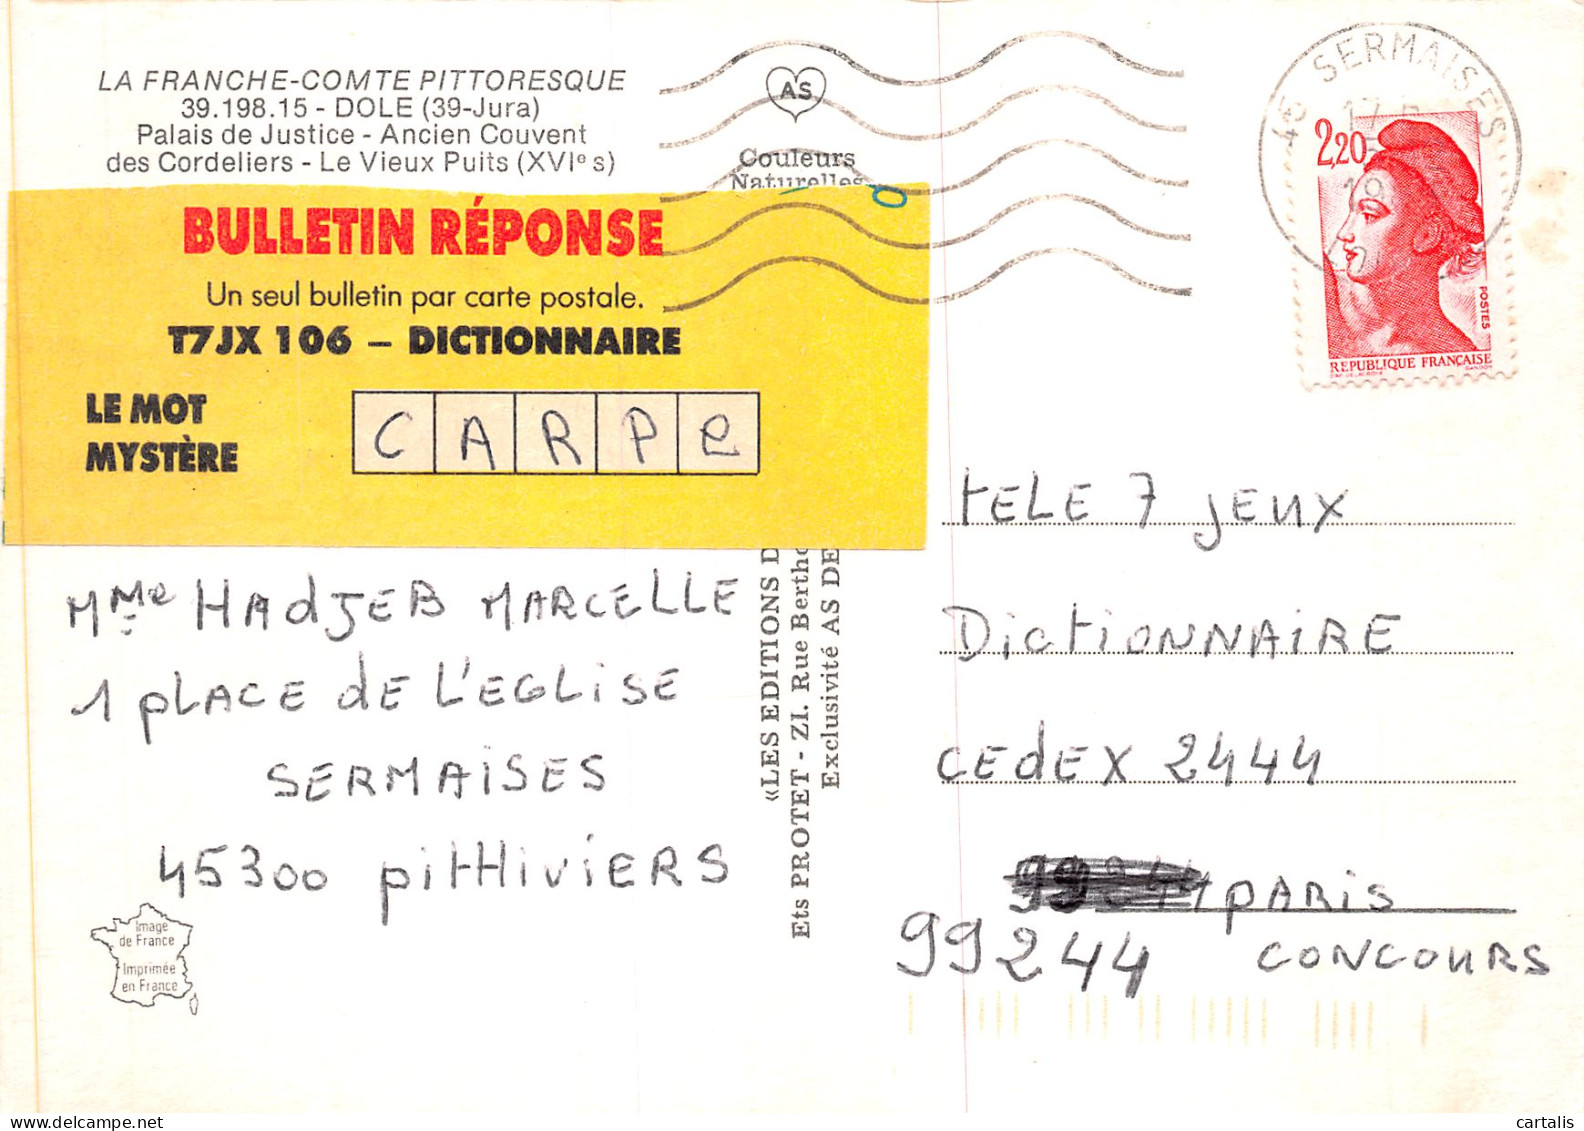 LA FRANCHE-COMTE PITTORESQUE
39.198.15 - DOLE (39-Jura)
Palais de Justice - Ancien Couvent
des Cordeliers - Le Vieux Puits (XVIe s)
AS
Couleurs
Naturelles
BULLETIN RÉPONSE
Un seul bulletin par carte postale.
T7JX 106 – DICTIONNAIRE
LE MOT
MYSTÈRE
CARPe
MMe HAdJEB MARCELLE
1 pLACE dE L'EGLiSE
SERMAISES
45300 pitHiviERS
Image
de France
Imprimée
en France
«LES EDITIONS D
Ets PROTET - ZI. Rue Bertho
Exclusivité AS DE
45 SERMAISES
17
19
2,20
POSTES
REPUBLIQUE FRANÇAISE
tELE 7 JEUX
DictiONNAIRE
CEdEX 2444
pARis
99244 CONCOURS
cartalis